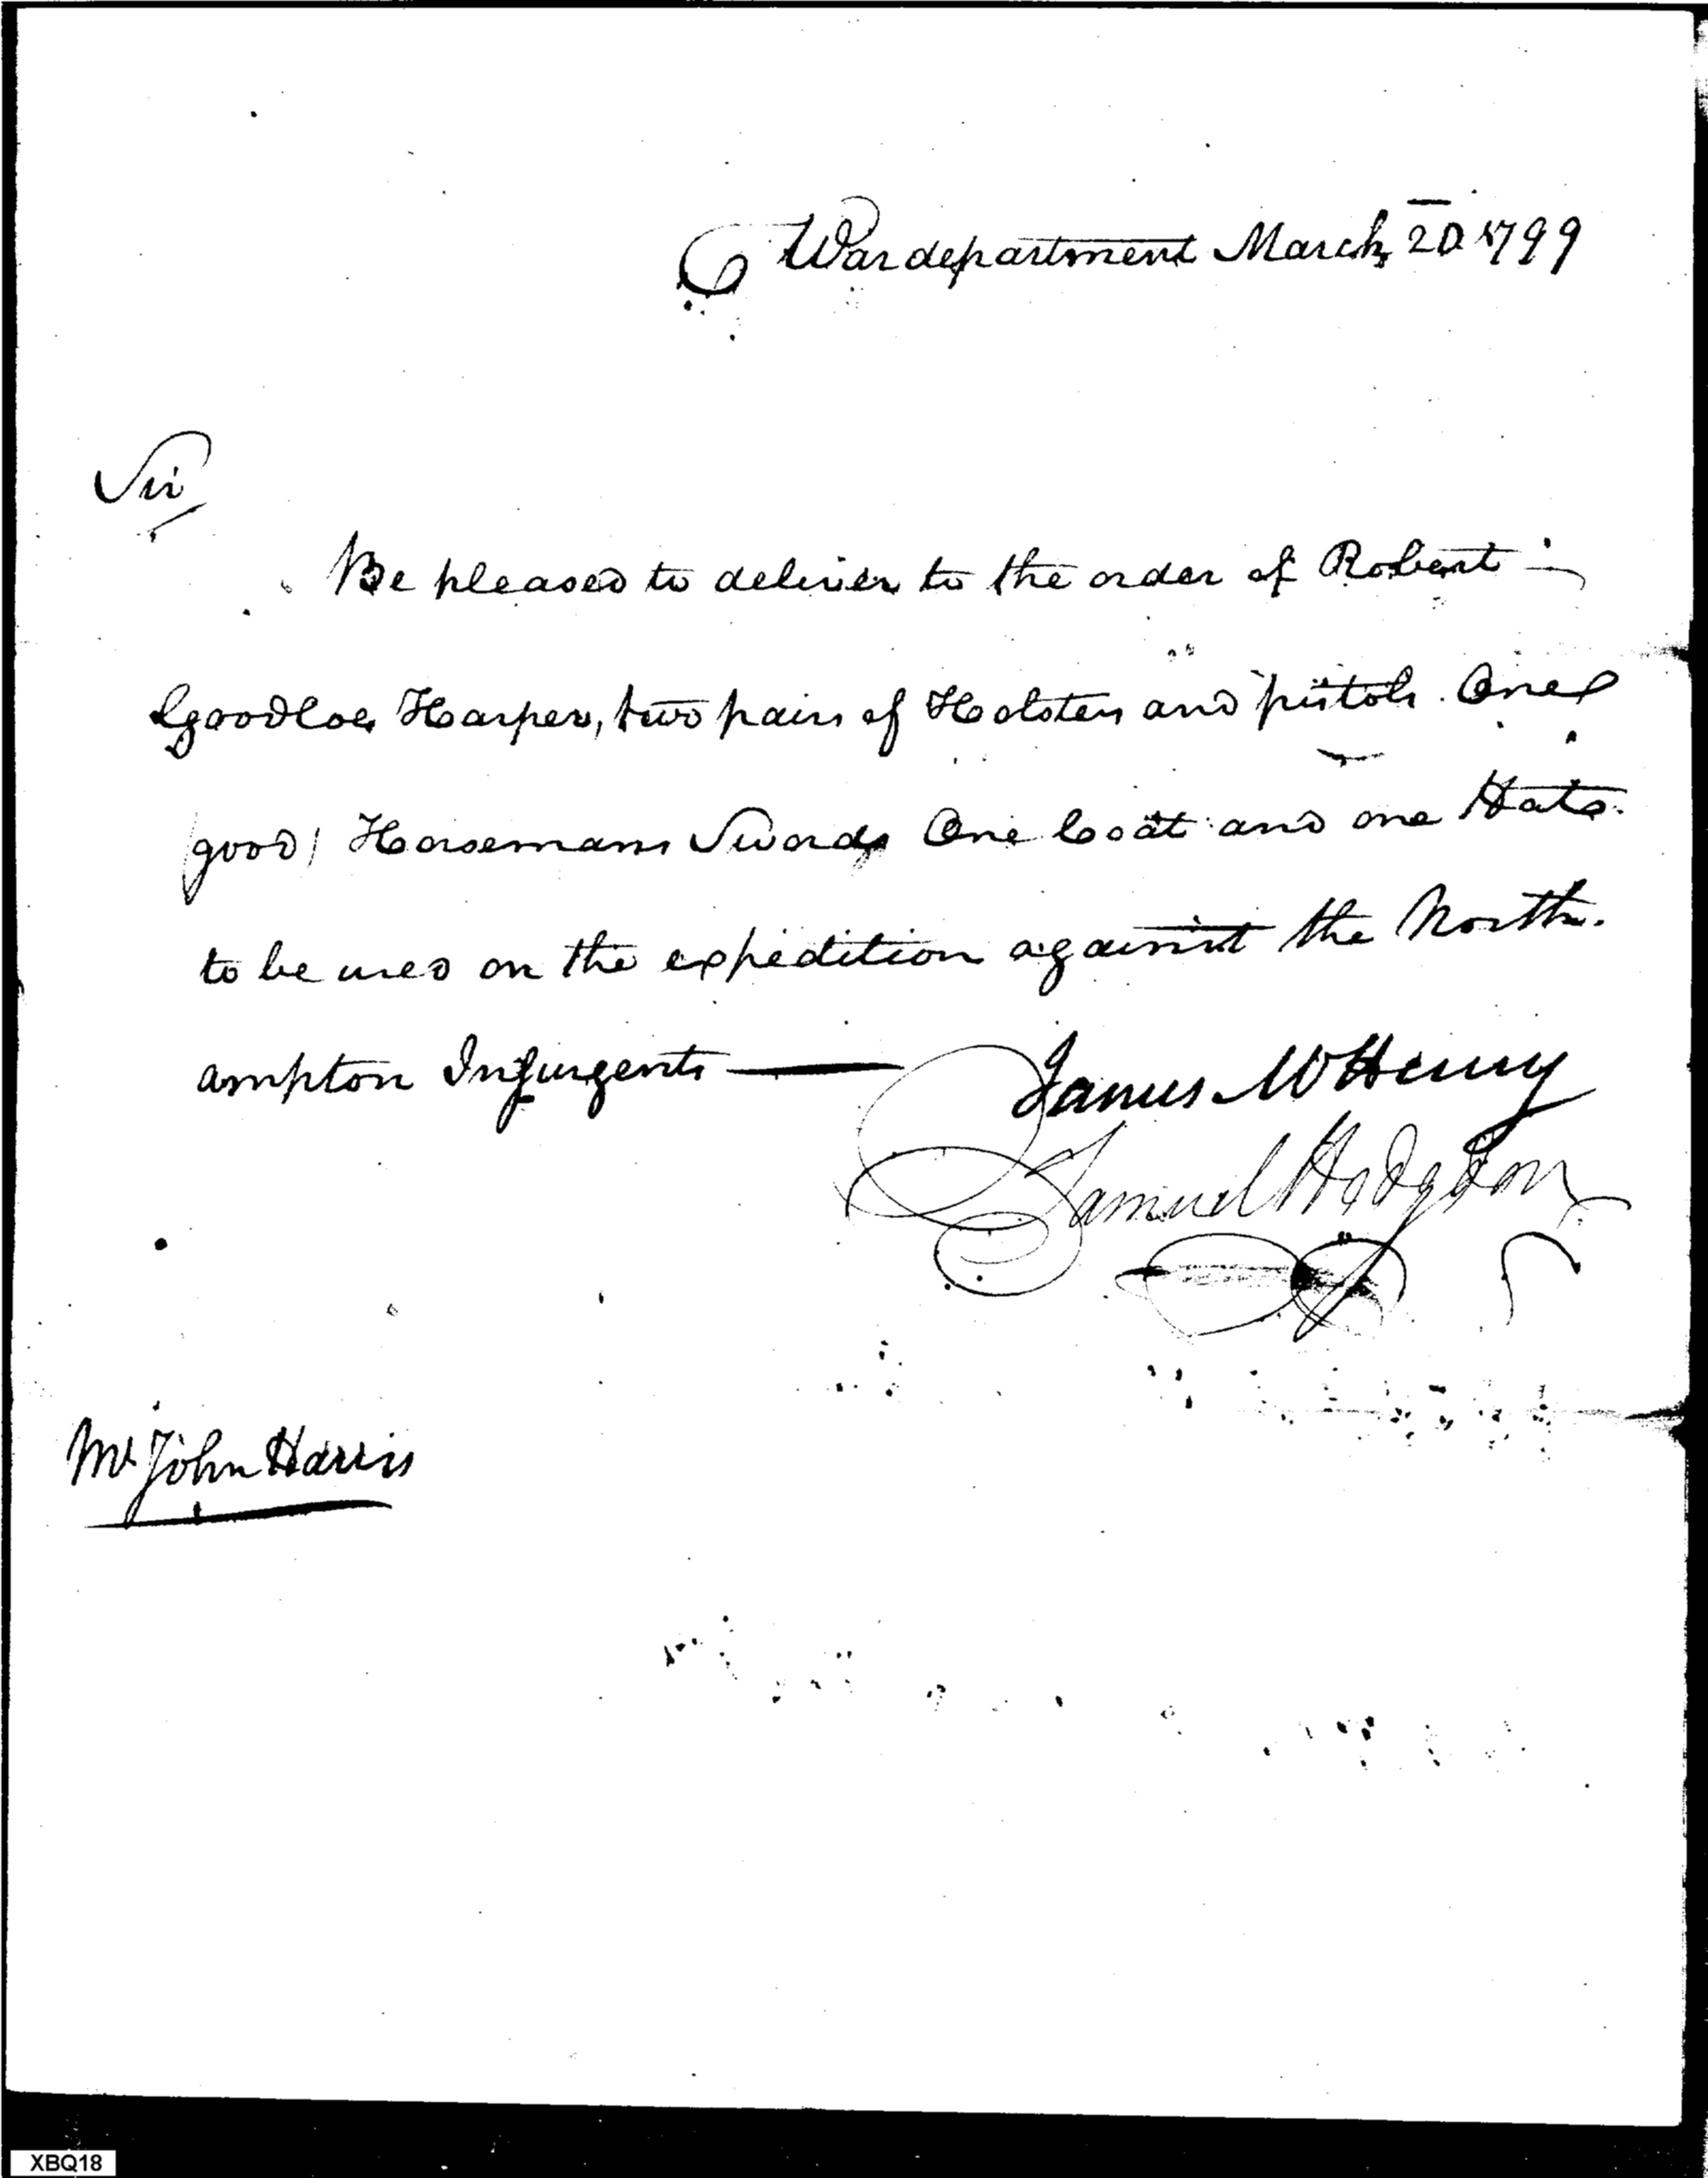 War department March 20 1799
Sir
Be pleased to deliver to the order of Robert
Goodloe Harper, two pairs of Holsters and pistols. One
good Horsemans Sword One Coat and one Hat
to be used on the expedition against the North.
ampton Insurgents —
James McHenry
Samuel Hodgdon
Mr John Harris
XBQ18